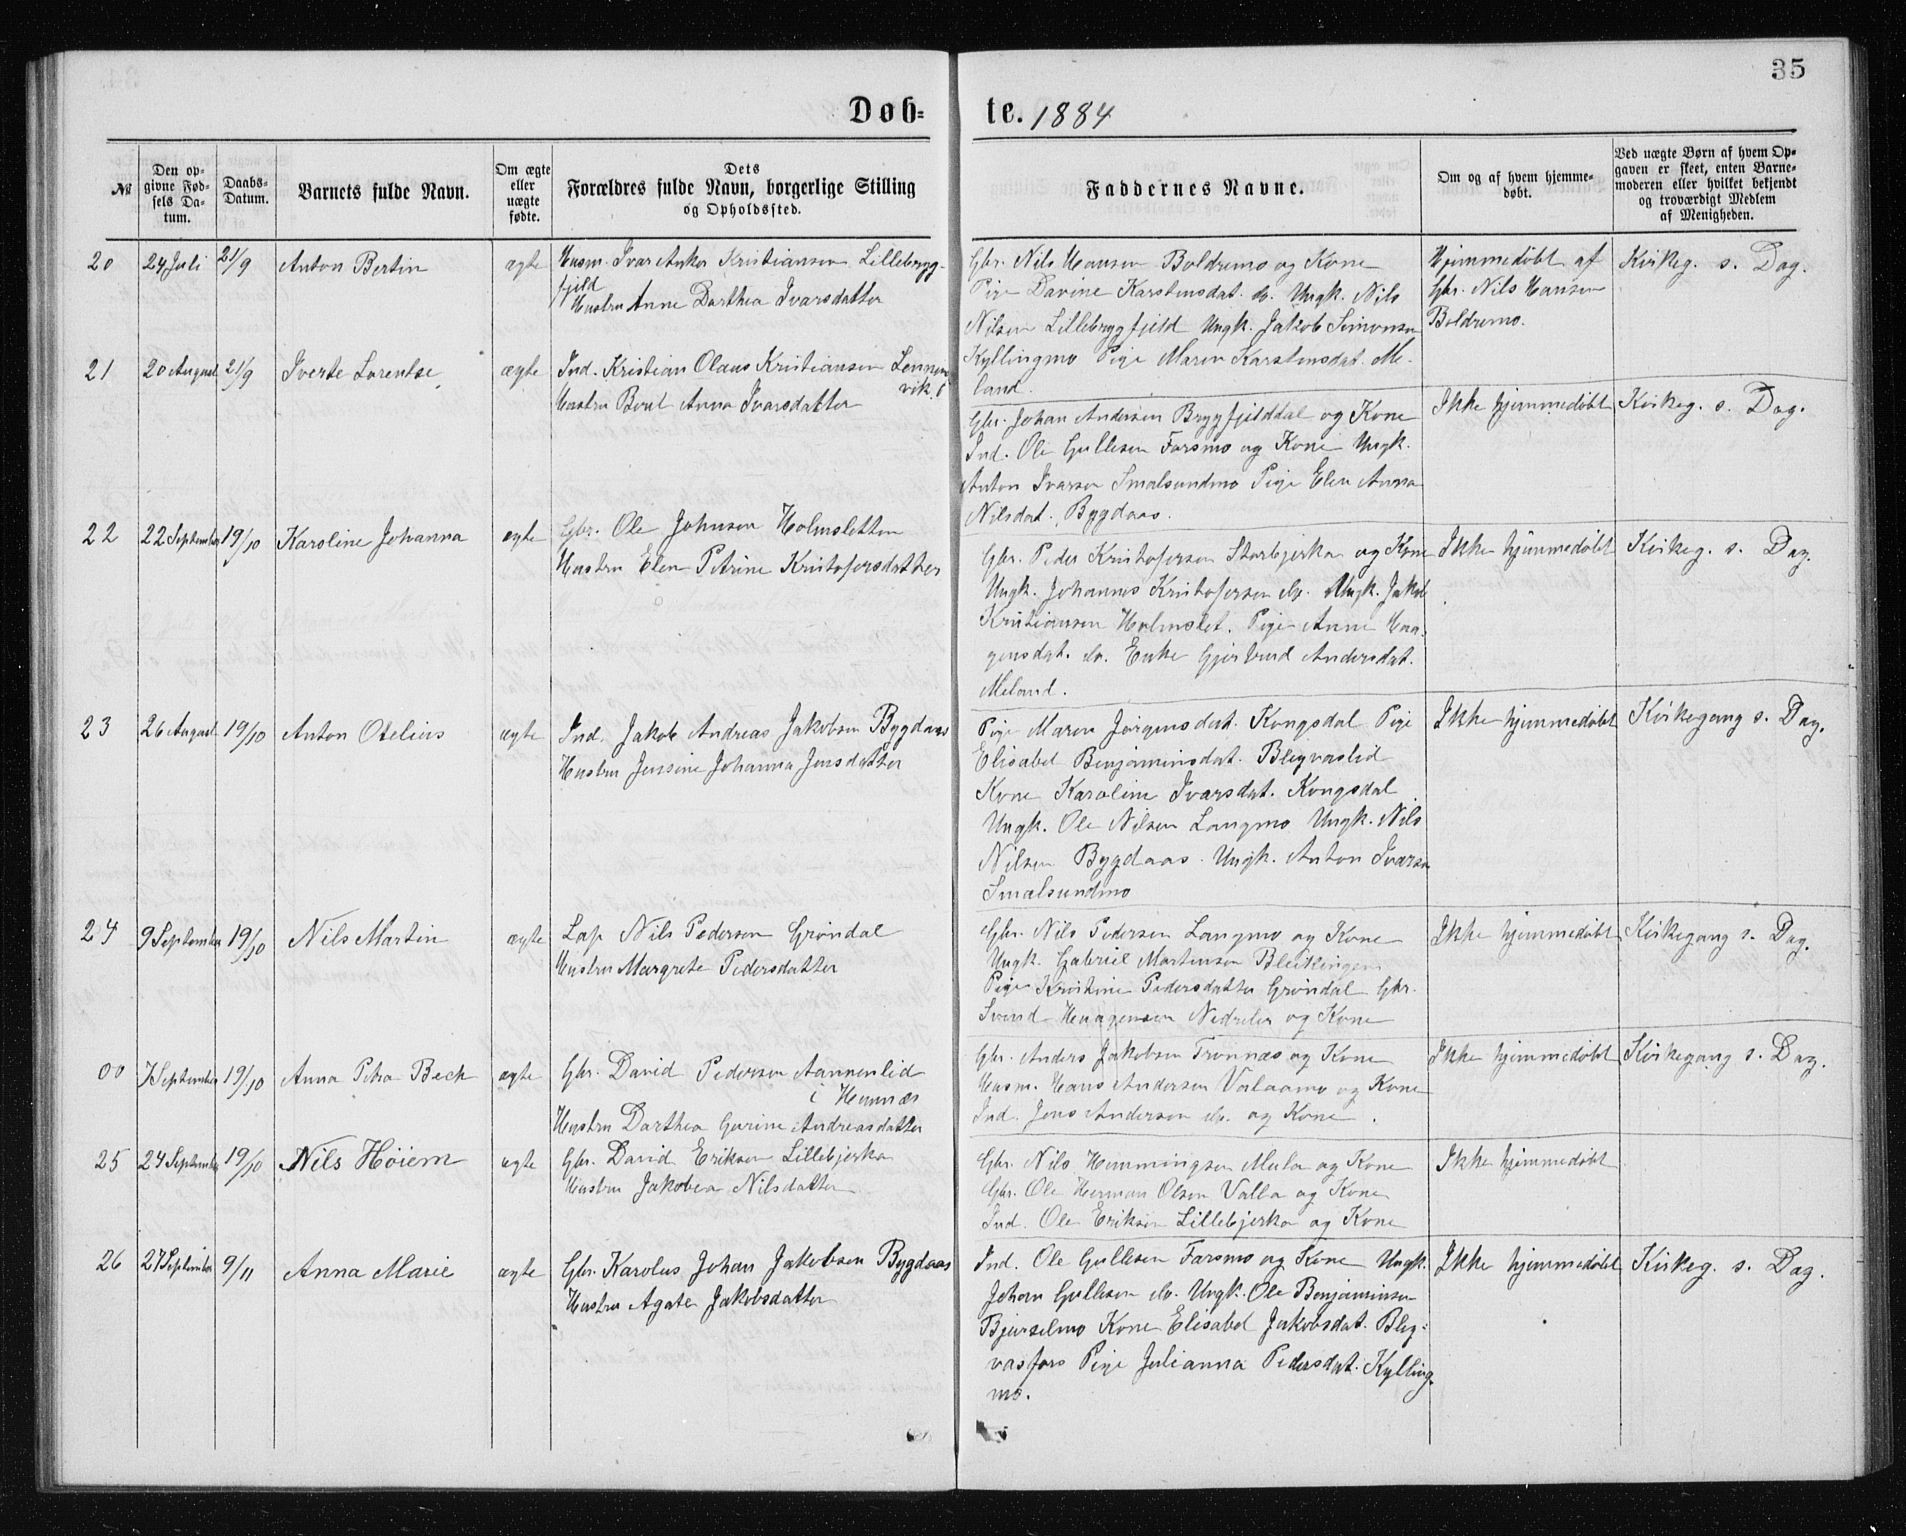 35
Døb=
te. 1884
№
Den op-
givne Fød-
sels Da-
tum.
Daabs-
Datum.
Barnets fulde Navn.
Om ægte
eller
uægte
fødte.
Dets
Forældres fulde Navn, borgerlige Stilling
og Opholdssted.
Faddernes Navne.
Om og af hvem hjemme-
døbt.
Ved uægte Børn af hvem Op-
gaven er skeet, enten Barne-
moderen eller hvilket bekjendt
og troværdigt Medlem
af Menigheden.
20 24 Juli 21/9 Anton Bertin ægte Husm. Ivar Anker Kristiansen Lillebryg-
fjeld
Hustru Anne Dorthea Ivarsdatter
Gbr. Nils Hansen Boldremo og Kone
Pige Davine Karstensdat. do. Ungk. Nils
Nilsen Lillebrygfjeld Ungk. Jakob Simonsen
Kyllingmo Pige Maren Karstensdat. Me-
land.
Hjemmedøbt af
Gbr. Nils Hansen
Boldremo.
Kirkeg. s. Dag.
21 20 August 21/9 Iverte Lorentse ægte Ind. Kristian Olaus Kristiansen
vik
Hustru Berit Anna Ivarsdatter
Gbr. Johan Andersen Brygfjelddal og Kone
Ind. Ole Gullesen Forsmo og Kone Ungk.
Anton Ivarsen Smalsundmo Pige Elen Anna
Nilsdat. Bygdaas.
Ikke hjemmedøbt
Kirkeg. s. Dag.
22 22 September 19/10 Karoline Johanna ægte Gbr. Ole Johnsen Holmsletten
Hustru Elen Petrine Kristofersdatter
Gbr. Peder Kristofersen Storbjerka og Kone
Ungk. Johannes Kristofersen do. Ungk. Jakob
Kristiansen Holmslet. Pige Anne Haa-
gensdat. do. Enke Gjertrud Andersdat.
Meland.
Ikke hjemmedøbt
Kirkeg. s. Dag.
23 26 August 19/10 Anton Otelius ægte Ind. Jakob Andreas Jakobsen Bygdaas
Hustru Jensine Johanna Jensdatter
Pige Maren Jørgensdat. Kongsdal Pige
Elisabet Benjaminsdat. Blegvaslid
Kone Karoline Ivarsdat. Kongsdal
Ungk. Ole Nilsen Langmo Ungk. Nils
Nilsen Bygdaas. Ungk. Anton Ivarsen
Smalsundmo
Ikke hjemmedøbt
Kirkegang s. Dag.
24 9 September 19/10 Nils Martin ægte Lap Nils Pedersen Grøndal
Hustru Margrete Pedersdatter
Gbr. Nils Pedersen Langmo og Kone
Ungk. Gabriel Martinsen Bleiklingen
Pige Kristine Pedersdatter Grøndal Gbr.
Svend Haagensen Nedreler og Kone
Ikke hjemmedøbt
Kirkegang s. Dag.
00 7 September 19/10 Anna Petra Bech ægte Gbr. David Pedersen Aannerlid
i Hemnæs
Hustru Dorthea Gurine Andreasdatter
Gbr. Anders Jakobsen Trønnæs og Kone
Husm. Hans Andersen Valaamo og Kone
Ind. Jens Andersen do. og Kone.
Ikke hjemmedøbt
Kirkegang s. Dag.
25 24 September 19/10 Nils Høiem ægte Gbr. David Eriksen Lillebjerka
Hustru Jakobea Nilsdatter
Gbr. Nils Hemmingsen Mula og Kone
Gbr. Ole Herman Olsen Valla og Kone
Ind. Ole Eriksen Lillebjerka og Kone
Ikke hjemmedøbt
26 27 September 9/11 Anna Marie ægte Gbr. Karolus Johan Jakobsen Bygdaas
Hustru Agate Jakobsdatter
Ind. Ole Gullesen Forsmo og Kone Ungk.
Johan Gullesen do. Ungk. Ole Benjaminsen
Bjurselmo Kone Elisabet Jakobsdat. Bleg-
vasfors Pige Julianna Pedersdat. Kylling-
mo.
Ikke hjemmedøbt
Kirkeg. s. Dag.